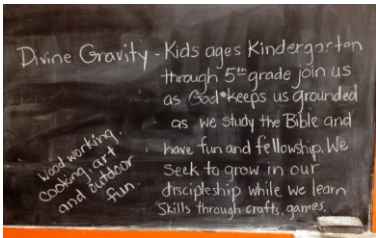 Divine Gravity - Kids ages Kindergarten
through 5th grade join us
as God keeps us grounded
as we study the Bible and
have fun and fellowship. We
seek to grow in our
discipleship while we learn
skills through crafts, games,
woodworking,
cooking, art
and outdoor
fun.